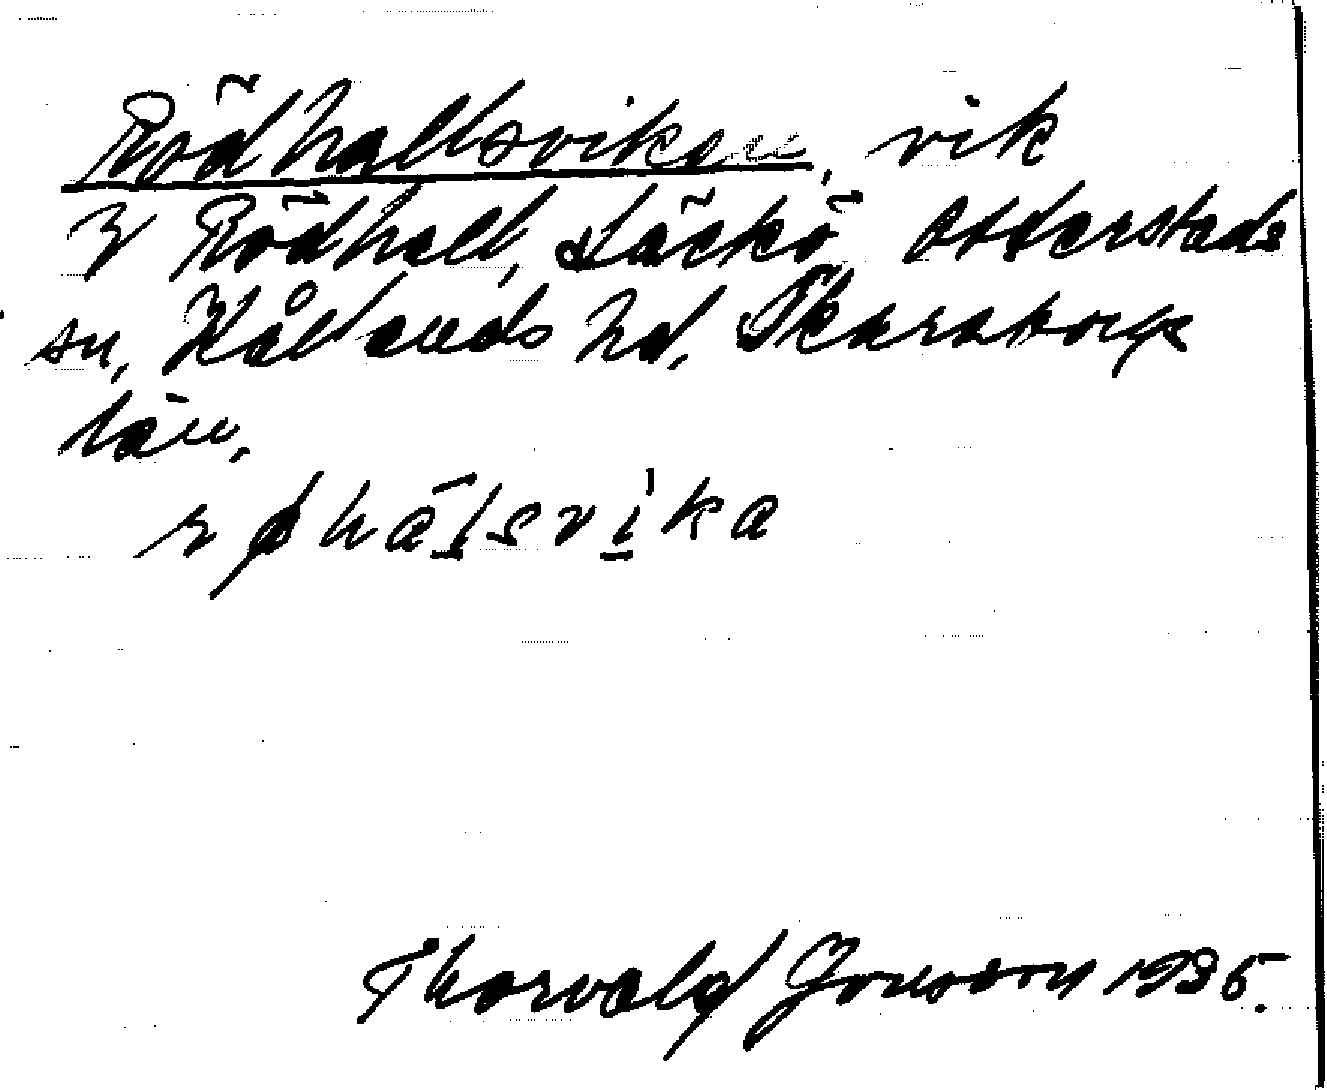 Rödhallsviken, vik
i Rödhall, Läckö Otterstads
sn, Kållands hd, Skaraborgs
län.
røhálsvika
Thorvald Jonsson 1935.